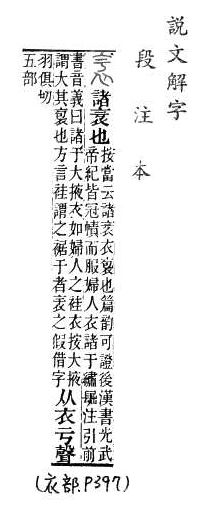 說文解字
段注本
諸衧也
按當云諸衧衣袌也篇韵可證後漢書光武
帝紀皆冠幘而服婦人衣諸于繡注引前
書音義曰諸于大掖衣如婦人之袿衣按大掖
謂大其袌也方言袿謂之裾于者衧之假借字
从衣亏聲
羽俱切
五部
(衣部.P397)